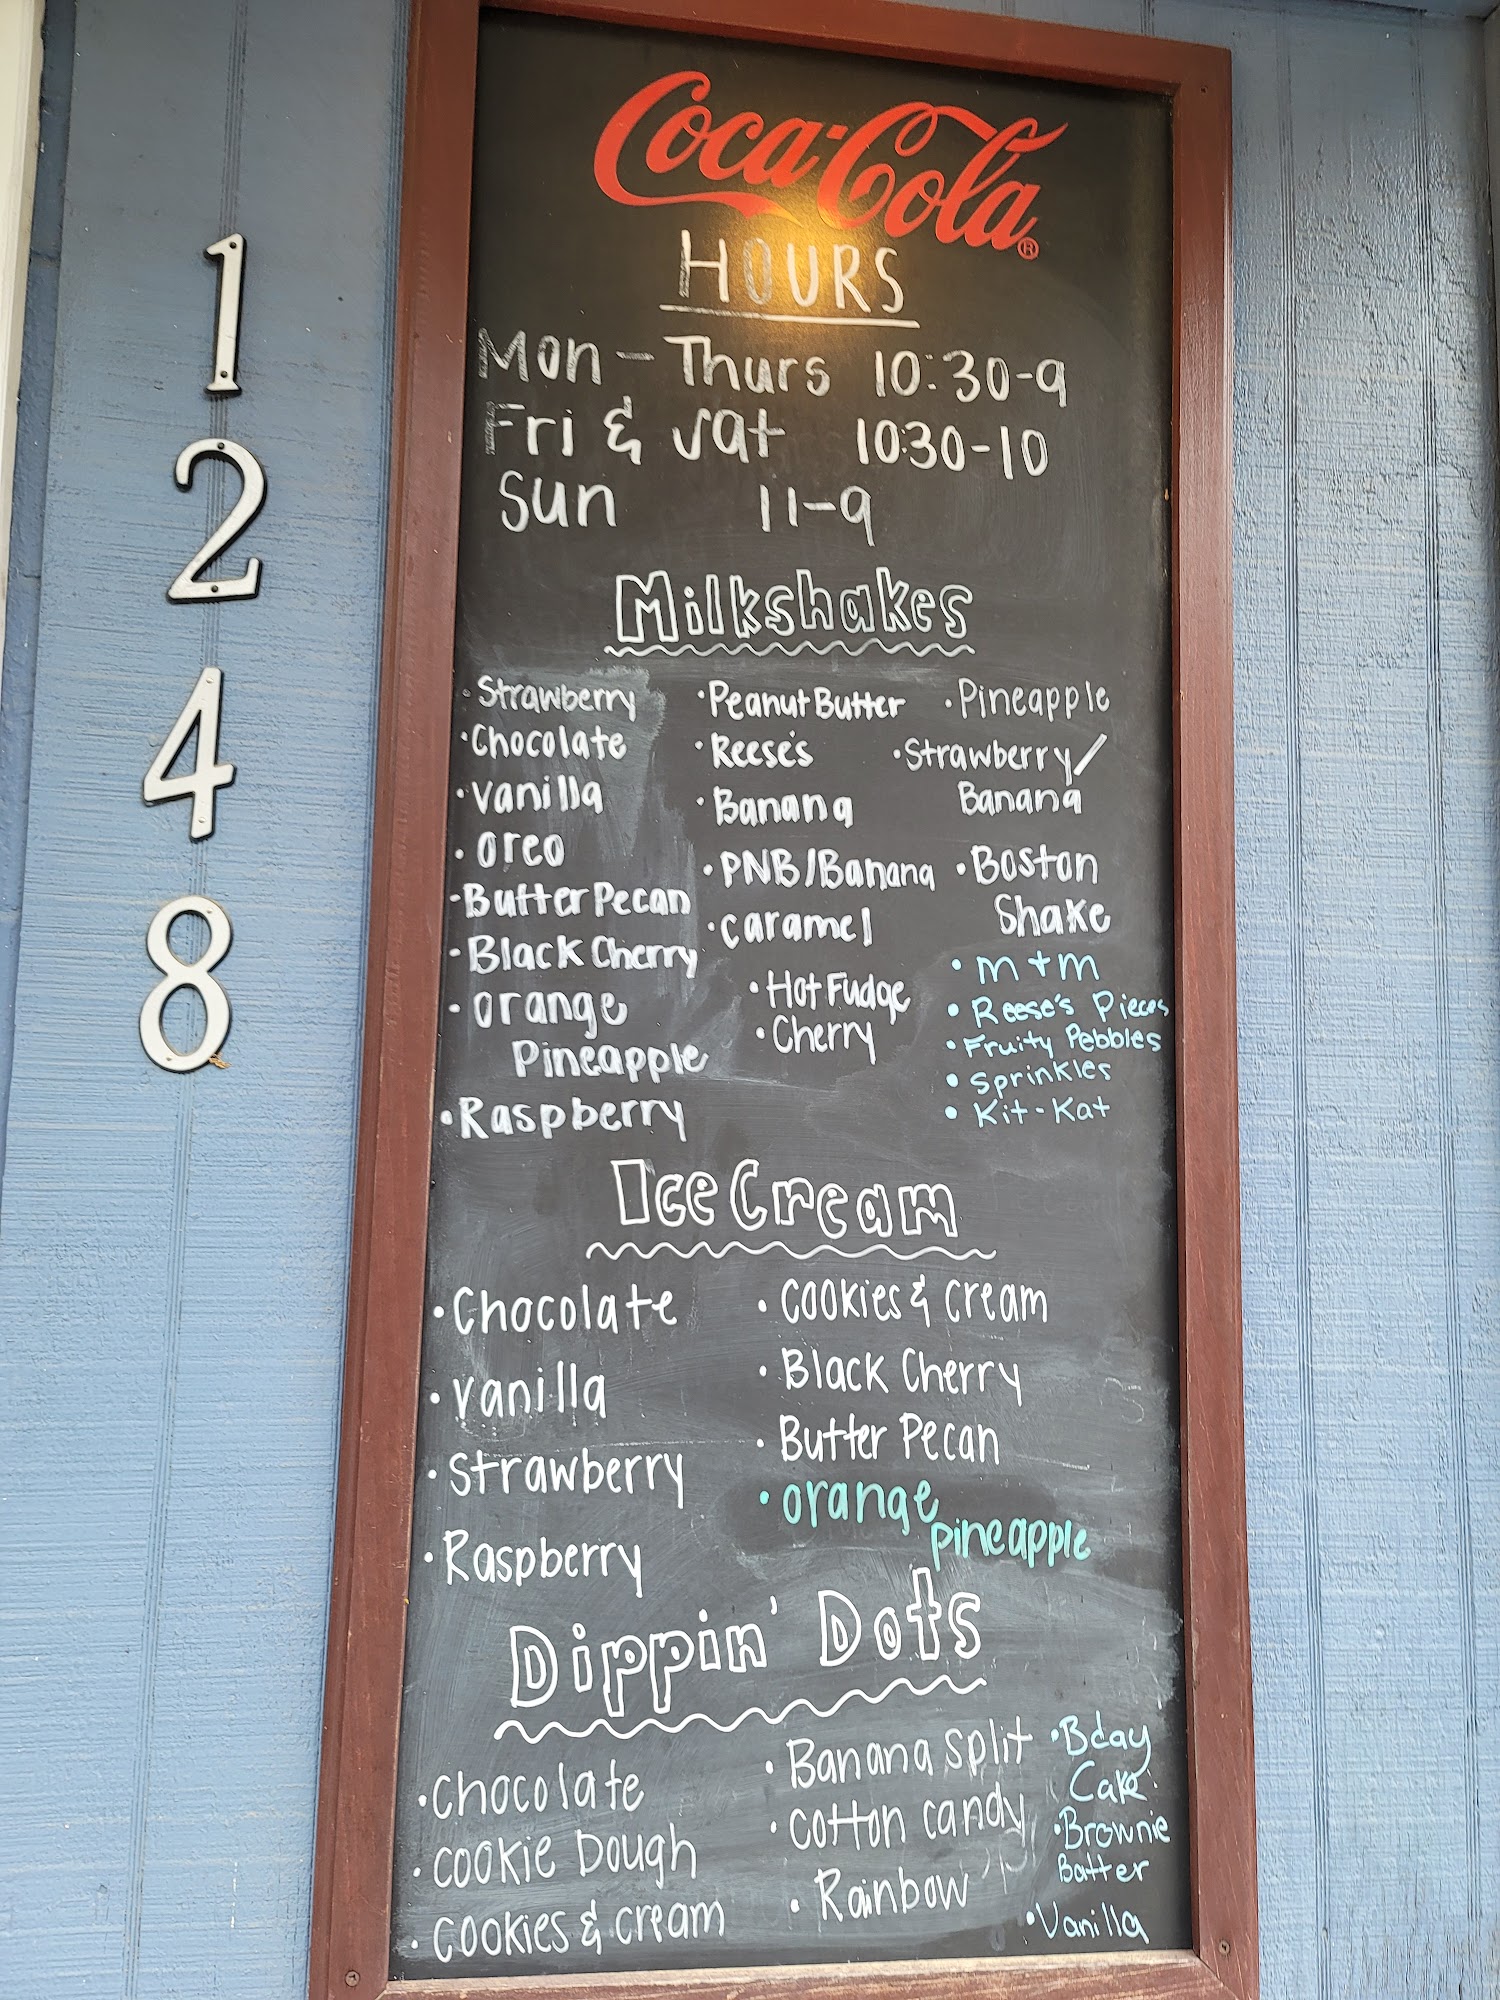 1
2
4
8
Coca-Cola®
HOURS
Mon-Thurs 10:30-9
Fri & Sat 10:30-10
Sun 11-9
Milkshakes
·Strawberry
·Chocolate
·Vanilla
·Oreo
·Butter Pecan
·Black Cherry
·Orange
Pineapple
·Raspberry
·Peanut Butter
·Reese's
·Banana
·PNB/Banana
·Caramel
·Hot Fudge
·Cherry
·Pineapple
·Strawberry/
Banana
·Boston
Shake
·M+M
·Reese's Pieces
·Fruity Pebbles
·Sprinkles
·Kit-Kat
Ice Cream
·Chocolate
·Vanilla
·Strawberry
·Raspberry
·Cookies & Cream
·Black Cherry
·Butter Pecan
·Orange
Pineapple
Dippin' Dots
·Chocolate
·Cookie Dough
·Cookies & Cream
·Banana Split
·Cotton Candy
·Rainbow
·Bday
Cake
·Brownie
Batter
·Vanilla